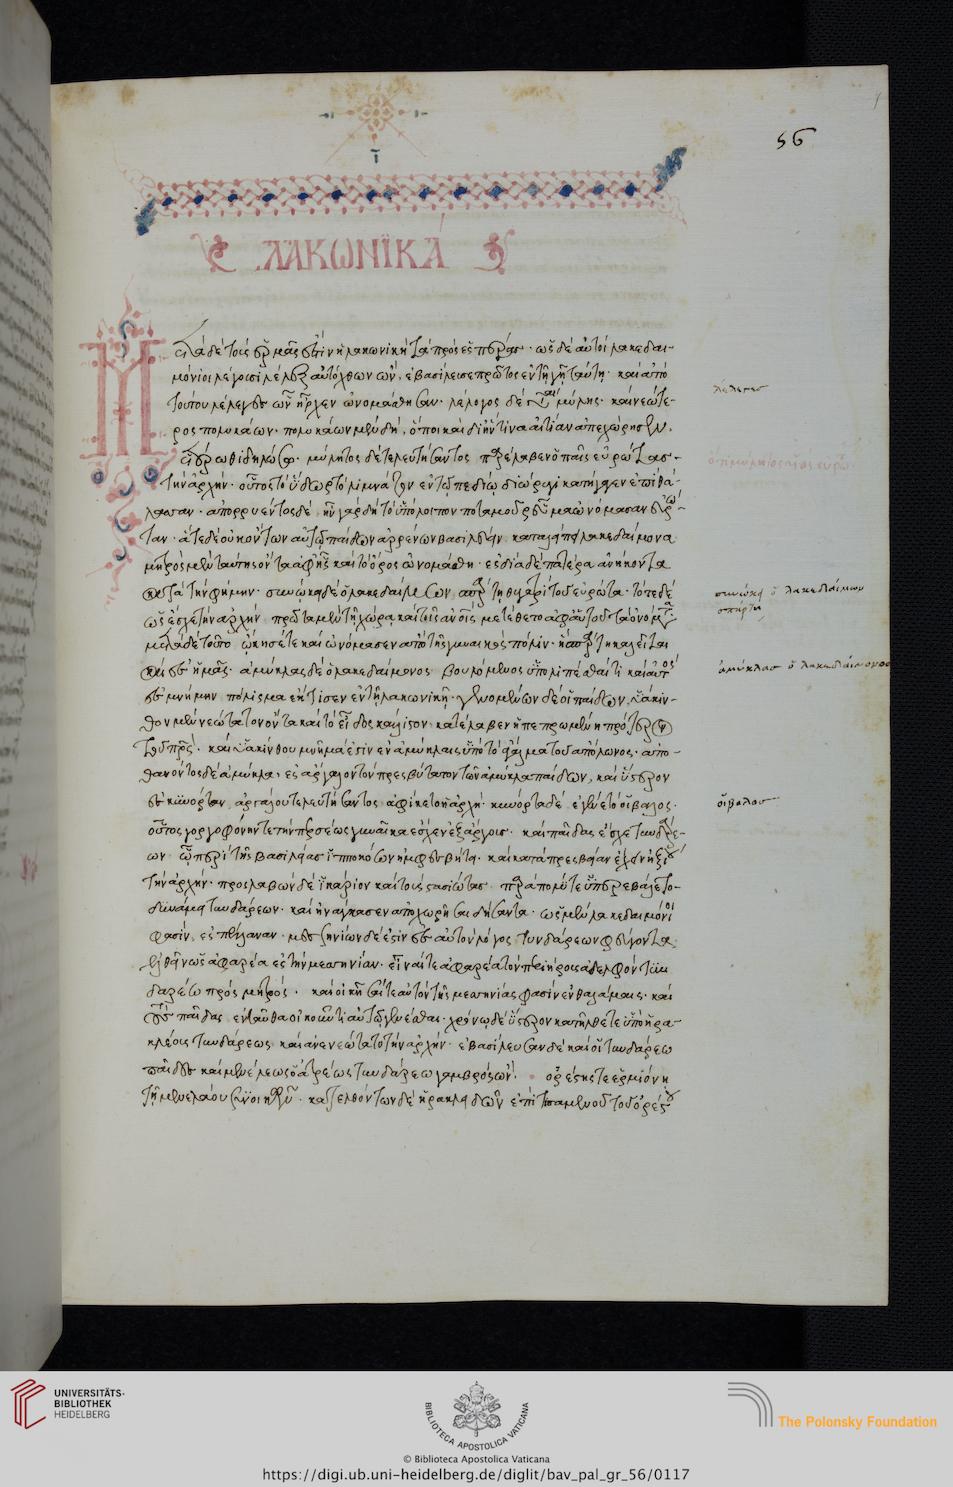 56
ΛΑΚΩΝΙΚΆ
μόνιοι λέγουσι λέλεξ αὐτόχθων ὢν, ἐβασίλευσε πρῶτος ἐν τῇ γῇ ταύτῃ. καὶ ἀπὸ
τούτου λέλεγες ὧν ἦρχεν ὠνομάσθησαν. λέλεγος δὲ γίνεται μύλης. καὶ νεώτε-
ρος πολυκάων. πολυκάων μὲν δὴ, ὅποι καὶ δι' ἥντινα αἰτίαν ἀπεχώρησεν,
ἑτέρωθι δηλώσω. μύλητος δὲ τελευτήσαντος παρέλαβεν ὁ παῖς εὐρώτας
τὴν ἀρχήν. οὗτος τὸ ὕδωρ τὸ λιμνάζον ἐν τῷ πεδίῳ διώρυγι κατήγαγεν ἐπὶ θά-
λασσαν. ἀπορρυέντος δὲ, ἦν γὰρ δὴ τὸ ὑπόλοιπον ποταμοῦ ῥεῦμα ὠνόμασεν εὐρώ-
ταν. ἅτε δὲ οὐκ ὄντων αὐτῷ παίδων ἀρρένων βασιλεύειν καταλείπει λακεδαίμονα
μητρὸς μὲν ταϋγέτης ὄντα ἀφ' ἧς καὶ τὸ ὄρος ὠνομάσθη. ἐς δία δὲ πατέρα ἀνήκοντα
κατὰ τὴν φήμην. συνῴκει δὲ ὁ λακεδαίμων σπάρτῃ θυγατρὶ τοῦ εὐρώτα. τότε δὲ
ὡς ἔσχε τὴν ἀρχὴν πρῶτα μὲν τῇ χώρᾳ καὶ τοῖς ἀνθρώποις μετέθετο ἀφ' αὑτοῦ τὰ ὀνόματα
μετὰ δὲ τοῦτο ᾤκησέ τε καὶ ὠνόμασεν ἀπὸ τῆς γυναικὸς πόλιν. ἣ σπάρτη καλεῖται
καὶ ἐς ἡμᾶς. ἀμύκλας δὲ ὁ λακεδαίμονος βουλόμενος ὑπολιπέσθαι τι καὶ αὐτὸς
ἐς μνήμην πόλισμα ἔκτισεν ἐν τῇ λακωνικῇ. γενομένων δέ οἱ παίδων, ὑάκιν-
θον μὲν νεώτατον ὄντα καὶ τὸ εἶδος κάλλιστον κατέλαβεν ἡ πεπρωμένη πρότερον
τοῦ πατρός. καὶ ὑακίνθου μνῆμά ἐστιν ἐν ἀμύκλαις ὑπὸ τὸ ἄγαλμα τοῦ ἀπόλλωνος. ἀπο-
θανόντος δὲ ἀμύκλα, ἐς ἄργαλον τὸν πρεσβύτατον τῶν ἀμύκλα παίδων, καὶ ὕστερον
ἐς κυνόρταν ἀργάλου τελευτήσαντος ἀφίκετο ἡ ἀρχή. κυνόρτα δὲ ἐγένετο οἴβαλος.
οὗτος γοργοφόνην τε τὴν περσέως γυναῖκα ἔσχεν ἐξ ἄργους. καὶ παῖδας ἔσχε τυνδάρε-
ων. ᾧ περὶ τῆς βασιλείας ἱπποκόων ἠμφισβήτει. καὶ κατὰ πρεσβείαν ἔχειν ἠξίου
τὴν ἀρχήν. προσλαβὼν δὲ ἰκάριον καὶ τοὺς στασιώτας παρὰ πολύ τε ὑπερεβάλετο
δυνάμει τυνδάρεων. καὶ ἠνάγκασεν ἀποχωρῆσαι δείσαντα. ὡς μὲν λακεδαιμόνιοι
φασὶν, ἐς πελλάναν. μεσσηνίων δέ ἐστιν ἐς αὐτὸν λόγος τυνδάρεων φεύγοντα
ἐλθεῖν ὡς ἀφαρέα ἐς τὴν μεσσηνίαν. εἶναί τε ἀφαρέα τὸν περιήρους ἀδελφὸν τυν-
δάρεω πρὸς μητρός. καὶ οἰκῆσαί τε αὐτὸν τῆς μεσσηνίας φασὶν ἐν θαλάμαις. καὶ
τοὺς παῖδας ἐνταῦθα οἰκοῦντι αὐτῷ γενέσθαι. χρόνῳ δὲ ὕστερον κατῆλθέ τε ὑπὸ ἡρα-
κλέους τυνδάρεως καὶ ἀνενεώσατο τὴν ἀρχήν. ἐβασίλευσαν δὲ καὶ οἱ τυνδάρεω
παῖδες καὶ μενέλεως ὁ ἀτρέως τυνδάρεω γαμβρὸς ὤν. ὀρέστης τε ἑρμιόνῃ
τῇ μενελάου συνοικῶν. κατελθόντων δὲ ἡρακλειδῶν ἐπὶ τισαμενοῦ τοῦ ὀρέστου
λέλεγες
συνῴκει ὁ λακεδαίμων
σπάρτῃ
ἀμύκλας ὁ λακεδαίμονος
οἴβαλος
UNIVERSITÄTS-
BIBLIOTHEK
HEIDELBERG
BIBLIOTECA APOSTOLICA VATICANA
The Polonsky Foundation
© Biblioteca Apostolica Vaticana
https://digi.ub.uni-heidelberg.de/diglit/bav_pal_gr_56/0117